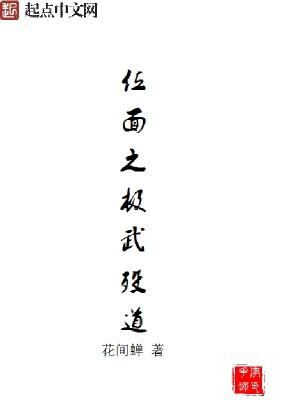 起点中文网
位面之极武殁道
花间蝉 著